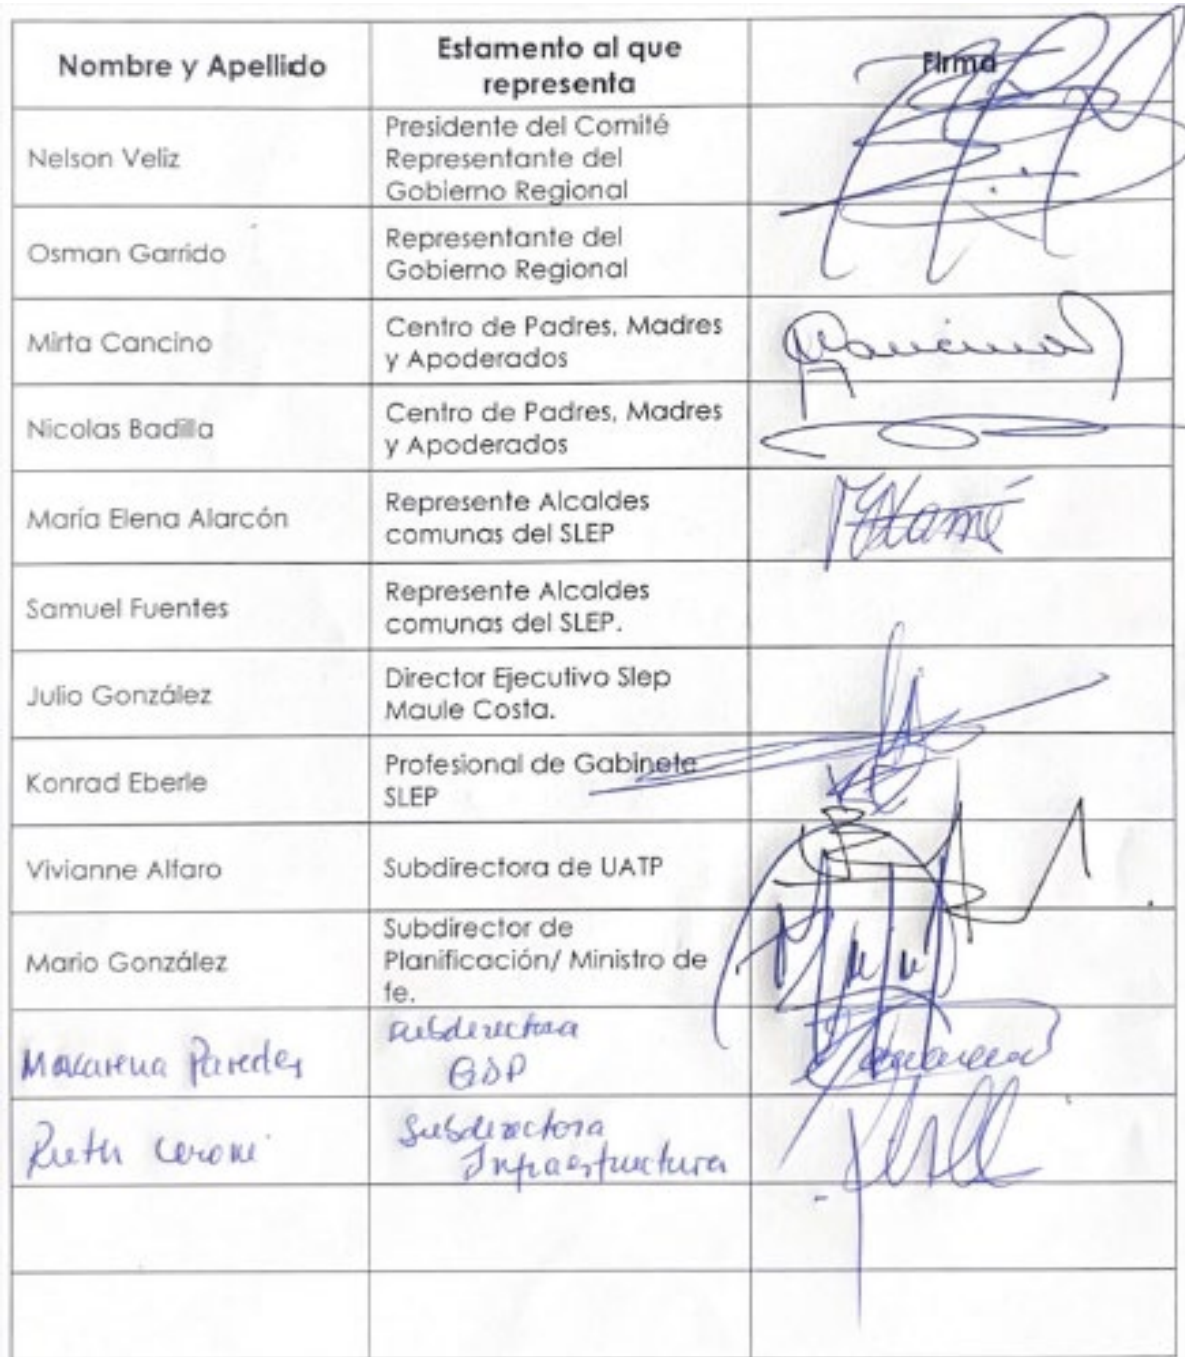 Nombre y Apellido
Estamento al que
representa
Firma
Nelson Veliz
Presidente del Comité
Representante del
Gobierno Regional
Osman Garrido
Representante del
Gobierno Regional
Mirta Cancino
Centro de Padres, Madres
y Apoderados
Nicolas Badilla
Centro de Padres, Madres
y Apoderados
María Elena Alarcón
Represente Alcaldes
comunas del SLEP
Samuel Fuentes
Represente Alcaldes
comunas del SLEP.
Julio González
Director Ejecutivo Slep
Maule Costa.
Konrad Eberle
Profesional de Gabinete
SLEP
Vivianne Alfaro
Subdirectora de UATP
Mario González
Subdirector de
Planificación/ Ministro de
fe.
Macarena Paredes
subdirectora
GDP
Ruth Ceroni
Subdirectora
Infraestructura